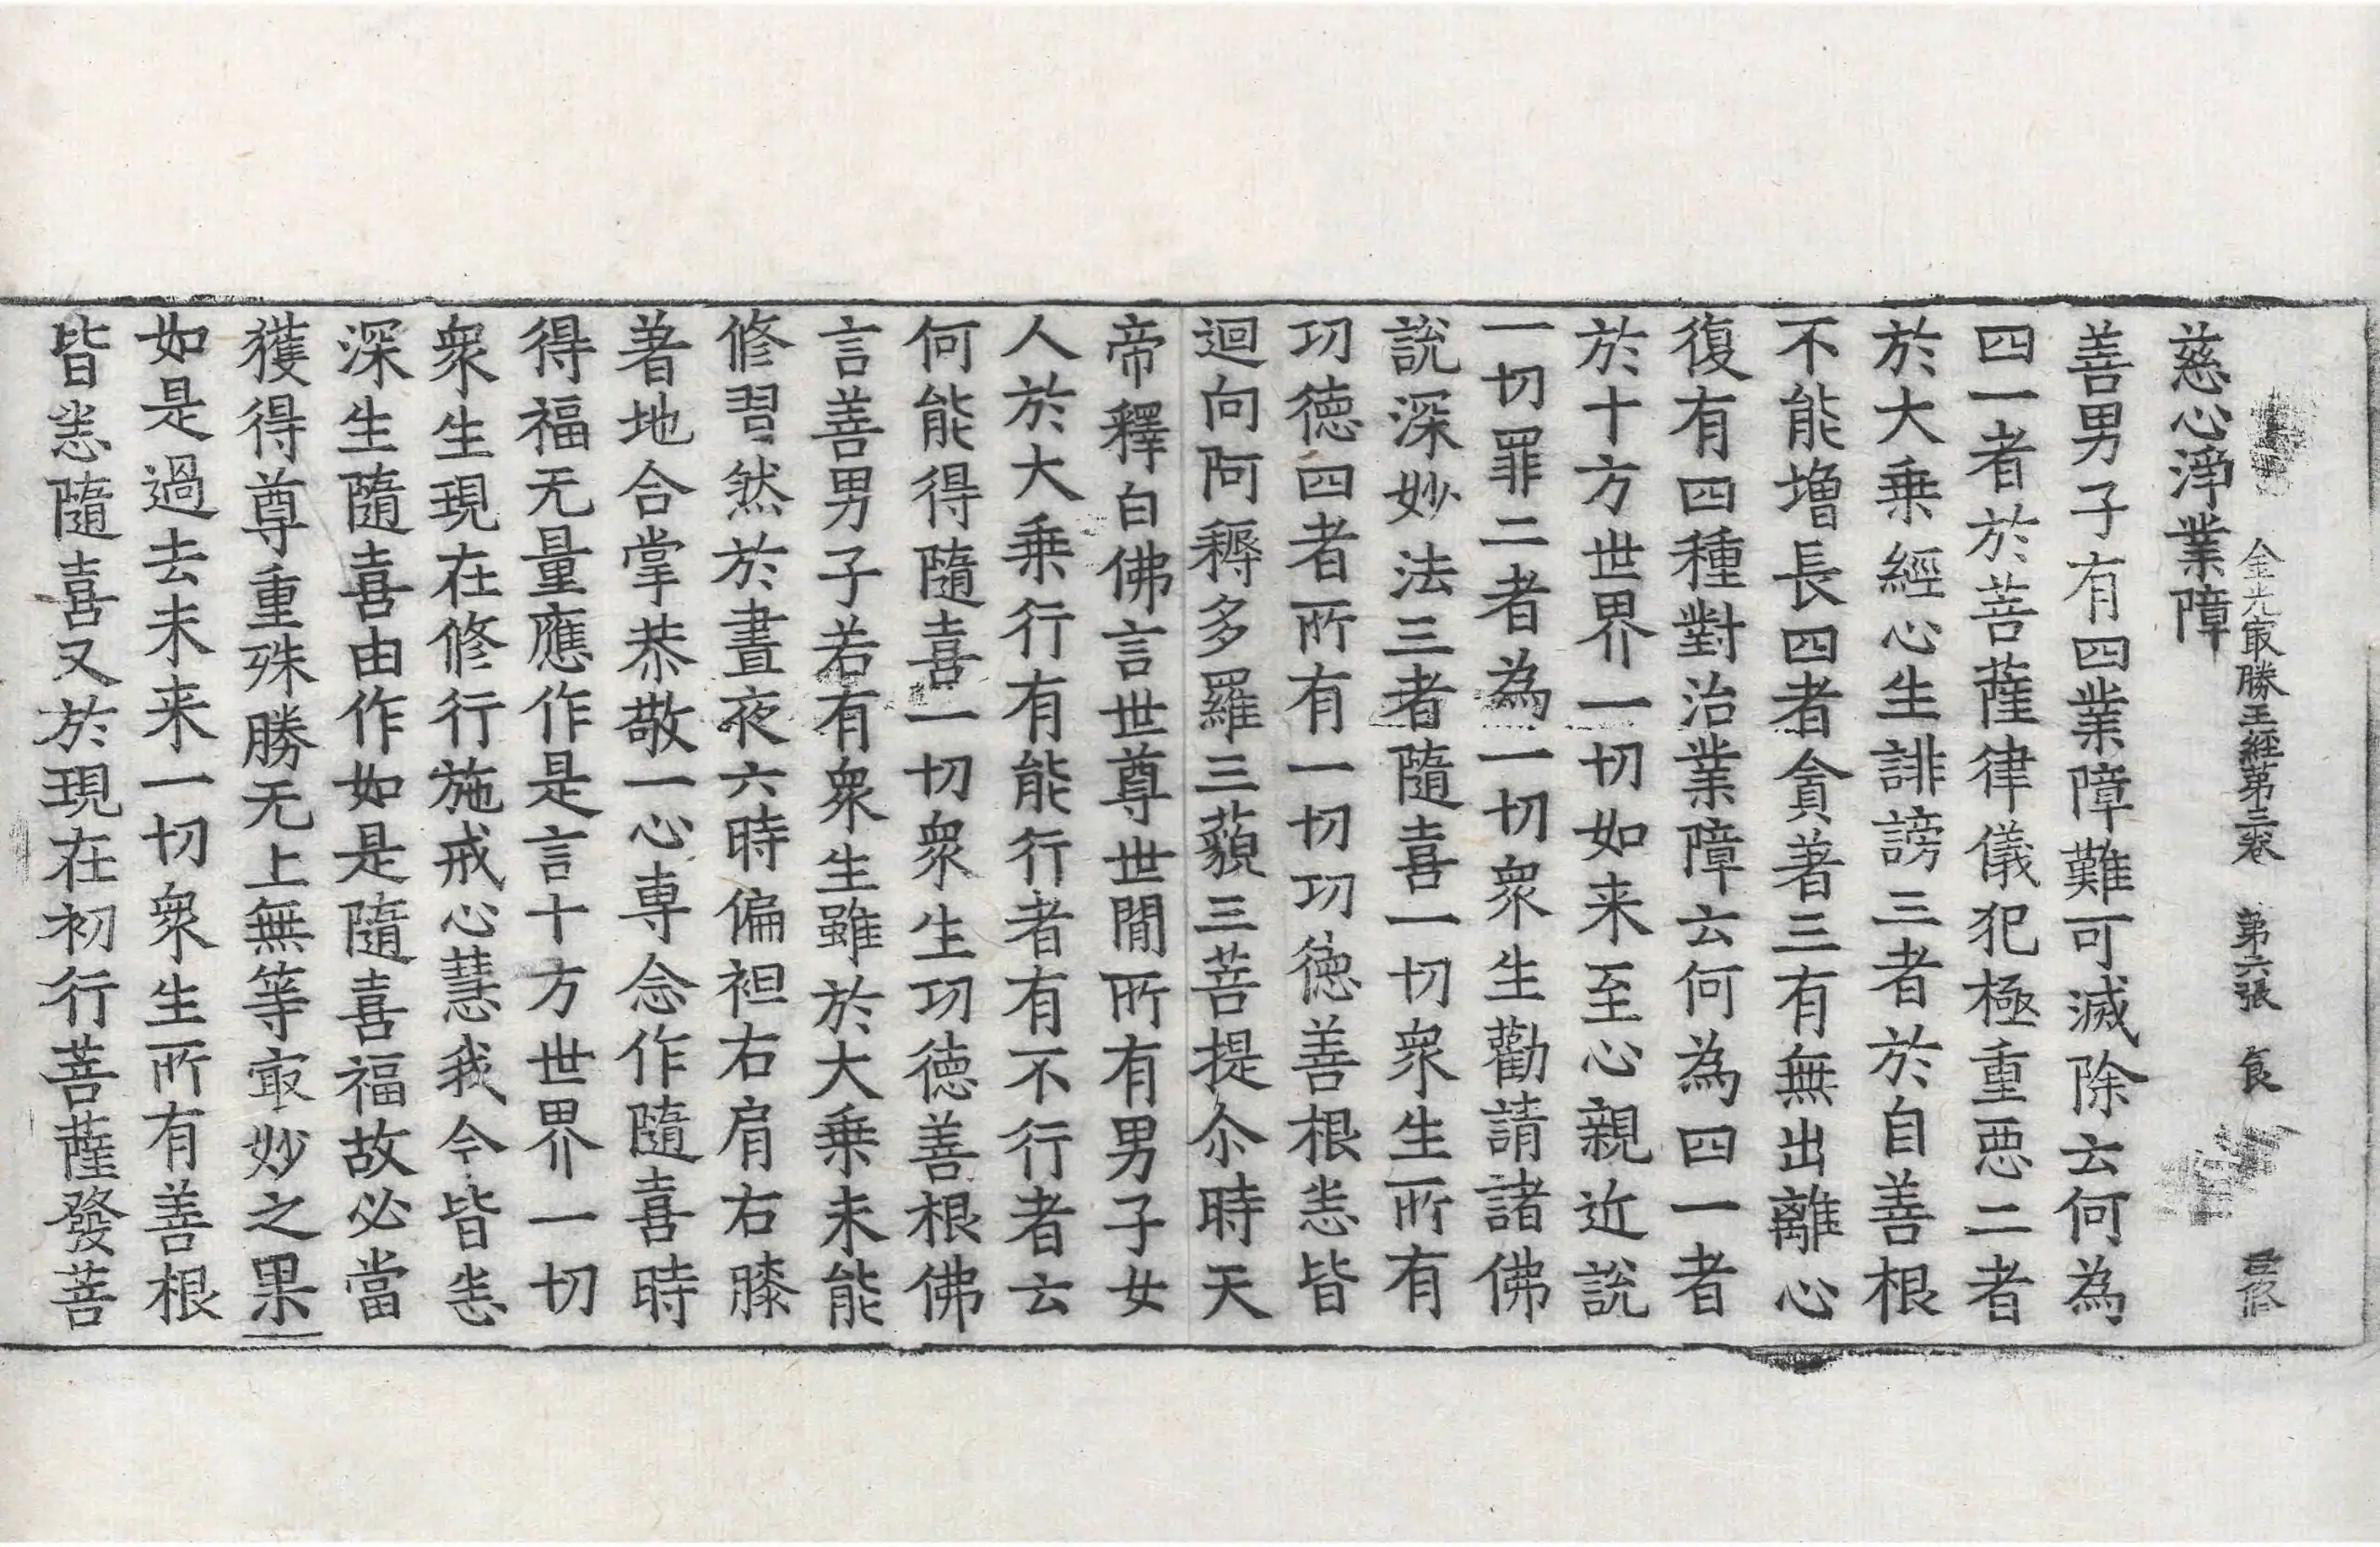 金光㝡勝王經第三卷　第六張　食
慈心淨業障
善男子有四業障難可滅除云何為
四一者於菩薩律儀犯極重惡二者
於大乗經心生誹謗三者於自善根
不能增長四者貪著三有無出離心
復有四種對治業障云何為四一者
於十方世界一切如来至心親近說
一切罪二者為一切衆生勸請諸佛
說深妙法三者隨喜一切衆生所有
功德四者所有一切功德善根悉皆
迴向阿耨多羅三藐三菩提尒時天
帝釋白佛言世尊世間所有男子女
人於大乗行有能行者有不行者云
何能得隨喜一切衆生功德善根佛
言善男子若有衆生雖於大乗未能
修習然於晝夜六時偏袒右肩右膝
著地合掌恭敬一心專念作隨喜時
得福无量應作是言十方世界一切
衆生現在修行施戒心慧我今皆悉
深生隨喜由作如是隨喜福故必當
獲得尊重殊勝无上無等㝡妙之果
如是過去未来一切衆生所有善根
皆悉隨喜又於現在初行菩薩發菩